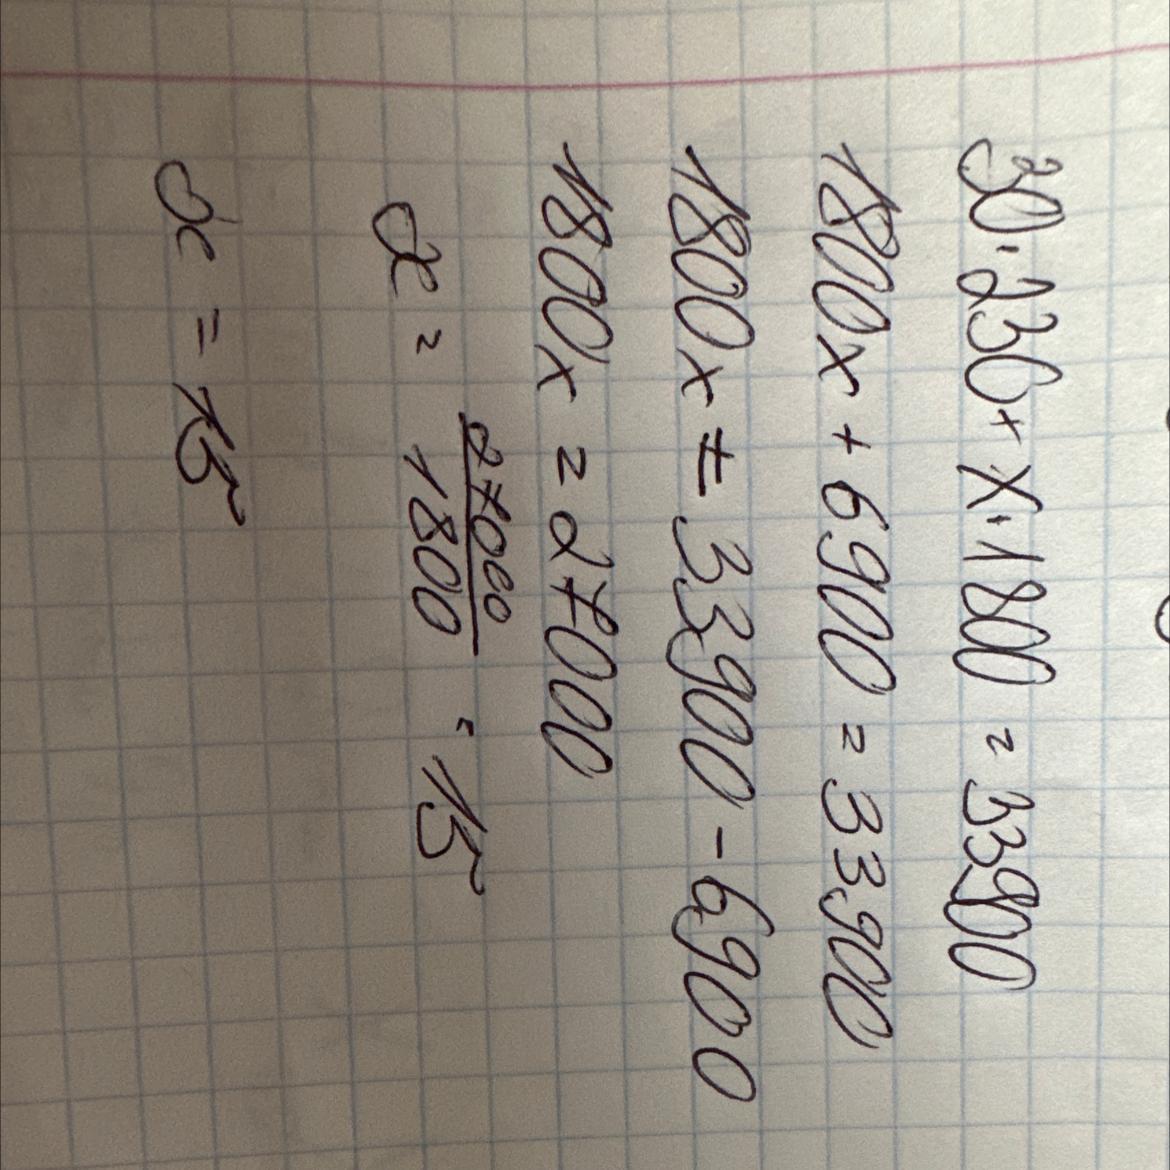 30·230+x·1800=33900
1800x+6900=33900
1800x=33900-6900
1800x=27000
x=27000/1800=15
x=15